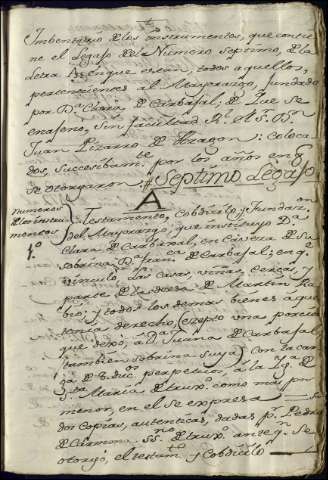 Imbentario de los instrumentos, que contie
ne el Legajo de el Numero septimo, de la
Letra A: en que estan, todos aquellos,
pertenecientes al Mayorazgo, fundado
por Da. Clara de Carbajal; de que se
enageno, sin facultad Rl. el S. Dn.
Juan Pizarro de Aragon: coloca
dos, succesibamte. por los años en q.
se otorgaron: Septimo Legajo
A
Numeros
de los instru
mentos
1.o
Testamento, Cobdicilo, y Fundaon.
del Mayorazgo, que instituyó Da.
Clara de Carbajal, en cabeza de su
sobrina Da. Franca. de Carbajal; en q.e
vinculó las casas, viñas, cercas, y
parte de la dehesa de Martin Ra
bio; y todos los demas bienes a que
tenia derecho, (excepto una porcion
que dexó, a Da. Juana de Carbajal,
tambien sobrina suya) con la car
ga de perpetuo, a la Ygl. de
Sta. Maria de Truxo. como mas por
menor, en el se expresa
dos copias, autenticas, dadas pr. Pedro
de Carmona SSno. de Truxo. ante qn. se
otorgó, el testamto. y Cobdicilo